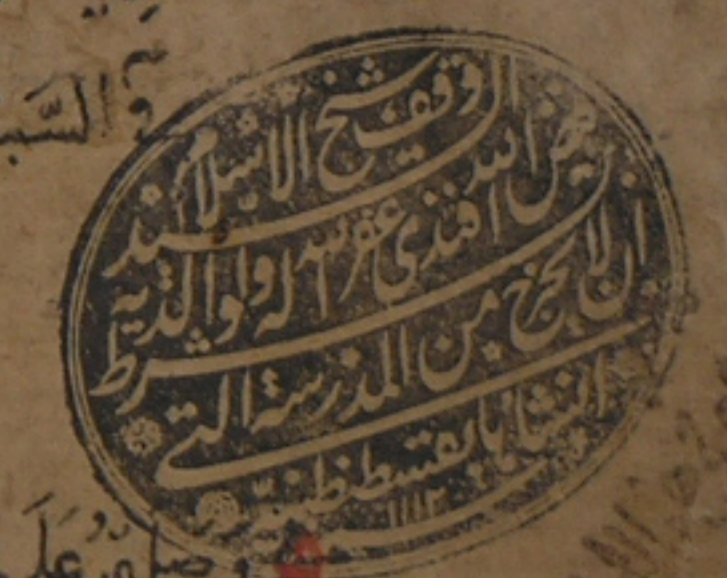 وقف شيخ الاسلام السيد
فيض الله افندى غفر الله له ولوالديه
بشرط ان لا يخرج من المدرسة التى
انشأها بقسطنطنية
١١١٢